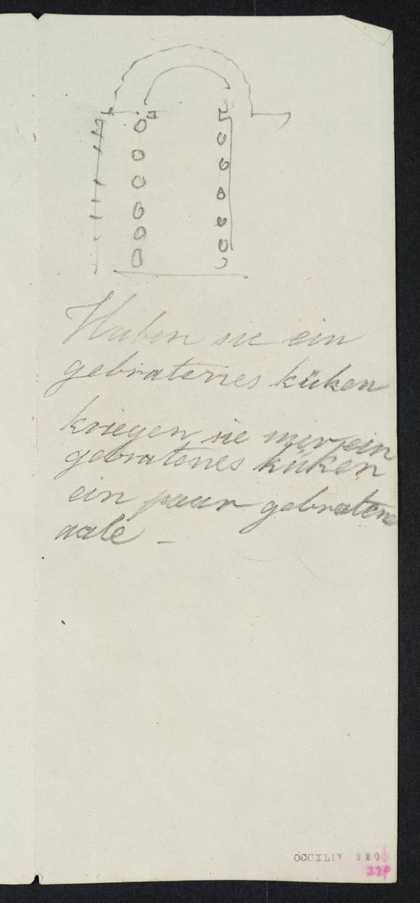 Haben sie ein
gebratenes küken
kriegen sie mir ein
gebratenes küken
ein paar gebratene
aale –